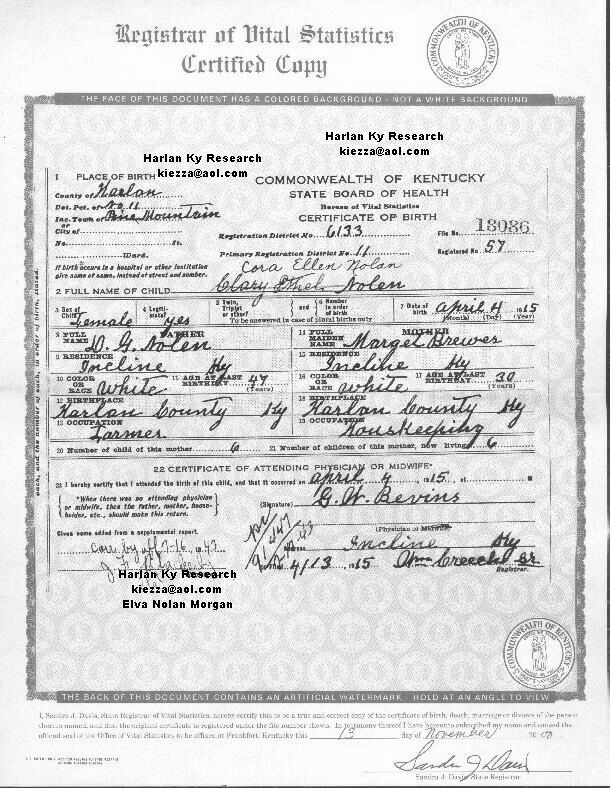 Registrar of Vital Statistics
Certified Copy
COMMONWEALTH OF KENTUCKY
THE FACE OF THIS DOCUMENT HAS A COLORED BACKGROUND - NOT A WHITE BACKGROUND
Harlan Ky Research
kiezza@aol.com
Harlan Ky Research
kiezza@aol.com
1 PLACE OF BIRTH
COMMONWEALTH OF KENTUCKY
County of Harlan
STATE BOARD OF HEALTH
Vot. Pct. of No. 11
Bureau of Vital Statistics
Inc. Town of Pine Mountain
CERTIFICATE OF BIRTH
or
City of
Registration District No. 6133
File No. 18086
No. St.
Primary Registration District No. 11
Registered No. 57
Ward.
If birth occurs in a hospital or other institution
give name of same, instead of street and number.
Cora Ellen Nolan
2 FULL NAME OF CHILD Clary Ethel Nolen
3 Sex of Child Female
4 Legitimate? yes
5 Twin, Triplet or Other?
and
6 Number in order of birth
To be answered in case of plural births only
7 Date of birth April 4 1915
(Month) (Day) (Year)
8 FULL NAME FATHER D. G. Nolen
14 FULL MAIDEN NAME MOTHER Margel Brewer
9 RESIDENCE Incline Ky
15 RESIDENCE Incline Ky
10 COLOR OR RACE White
11 AGE AT LAST BIRTHDAY 47 (Years)
16 COLOR OR RACE White
17 AGE AT LAST BIRTHDAY 30 (Years)
12 BIRTHPLACE Harlan County Ky
18 BIRTHPLACE Harlan County Ky
13 OCCUPATION Farmer
19 OCCUPATION Houskeeping
20 Number of child of this mother 6
21 Number of children of this mother, now living 6
each, and the number of each, in order of birth, stated.
22 CERTIFICATE OF ATTENDING PHYSICIAN OR MIDWIFE*
23 I hereby certify that I attended the birth of this child, and that it occurred on April 4, 1915, at M
*When there was no attending physician
or midwife, then the father, mother, house-
holder, etc., should make this return.
(Signature) G. W. Bevins
(Physician or Midwife)
Given name added from a supplemental report
Address Incline Ky
Filed 4/13 1915 Wm Creech Sr
Registrar.
Harlan Ky Research
kiezza@aol.com
Elva Nolan Morgan
COMMONWEALTH OF KENTUCKY
THE BACK OF THIS DOCUMENT CONTAINS AN ARTIFICIAL WATERMARK - HOLD AT AN ANGLE TO VIEW
I, Sandra J. Davis, State Registrar of Vital Statistics, hereby certify this to be a true and correct copy of the certificate of birth, death, marriage or divorce of the person
therein named, and that the original certificate is registered under the file number shown. In testimony thereof I have hereunto subscribed my name and caused the
official seal of the Office of Vital Statistics to be affixed at Frankfort, Kentucky this 13 day of November 2000
Sandra J. Davis
Sandra J. Davis State Registrar